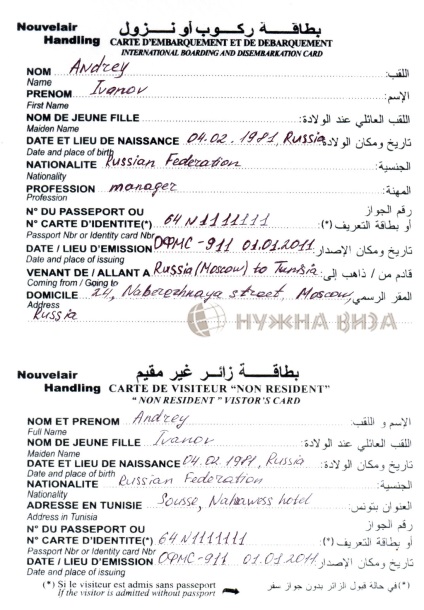 Nouvelair Handling
بطاقة ركوب أو نزول
CARTE D'EMBARQUEMENT ET DE DEBARQUEMENT
INTERNATIONAL BOARDING AND DISEMBARKATION CARD
NOM Andrey اللقب:
PRENOM Ivanov الإسم:
First Name
NOM DE JEUNE FILLE اللقب العائلي عند الولادة:
Maiden Name
DATE ET LIEU DE NAISSANCE 04.02.1981, Russia تاريخ ومكان الولادة:
Date and place of birth
NATIONALITE Russian Federation الجنسية:
Nationality
PROFESSION manager المهنة:
Profession
N° DU PASSEPORT OU رقم الجواز
N° CARTE D'IDENTITE(*) 64 N1111111 أو بطاقة التعريف(*):
Passport Nbr or Identity card Nbr
DATE / LIEU D'EMISSION ОФМС-911 01.01.2011 تاريخ ومكان الإصدار:
Date and place of issuing
VENANT DE / ALLANT A Russia (Moscow) to Tunisia قادم من / ذاهب إلى:
Coming from / Going to
DOMICILE 24, Naberezhnaya street, Moscow, المقر الرسمي:
Address
Russia
НУЖНА ВИЗА
Nouvelair Handling
بطاقة زائر غير مقيم
CARTE DE VISITEUR "NON RESIDENT"
"NON RESIDENT" VISTOR'S CARD
NOM ET PRENOM Andrey الاسم و اللقب:
Full Name
NOM DE JEUNE FILLE Ivanov اللقب العائلي عند الولادة:
Maiden Name
DATE ET LIEU DE NAISSANCE 04.02.1981, Russia تاريخ ومكان الولادة:
Date and place of birth
NATIONALITE Russian Federation الجنسية:
Nationality
ADRESSE EN TUNISIE Sousse, Nahrawess hotel العنوان بتونس:
Address in Tunisia
N° DU PASSEPORT OU رقم الجواز
N° CARTE D'IDENTITE(*) 64 N1111111 أو بطاقة التعريف(*):
Passport Nbr or Identity card Nbr
DATE / LIEU D'EMISSION ОФМС-911 01.01.2011 تاريخ ومكان الإصدار:
Date and place of issuing
(*) Si le visiteur est admis sans passeport (*) في حالة قبول الزائر بدون جواز سفر
If the visitor is admitted without passport